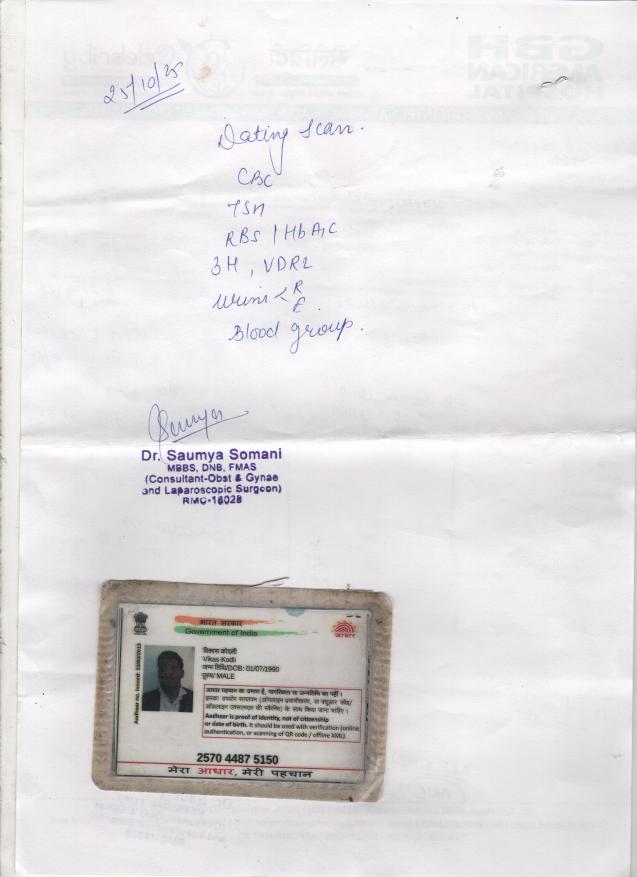 25/10/25
Dating Scan.
CBC
TSH
RBS / HbA1C
3H, VDRL
Urine < R
E
Blood group.
Saumya
Dr. Saumya Somani
MBBS, DNB, FMAS
(Consultant-Obst & Gynae
and Laparoscopic Surgeon)
RMC-18028
भारत सरकार
Government of India
आधार
विकास कोदली
Vikas Kodli
जन्म तिथि/DOB: 01/07/1990
पुरुष/ MALE
आधार पहचान का प्रमाण है, नागरिकता या जन्मतिथि का नहीं।
Aadhaar is proof of identity, not of citizenship
or date of birth. It should be used with verification (online
authentication, or scanning of QR code / offline XML).
2570 4487 5150
मेरा आधार, मेरी पहचान
GBH
AMERICAN
HOSPITAL
Celebrity